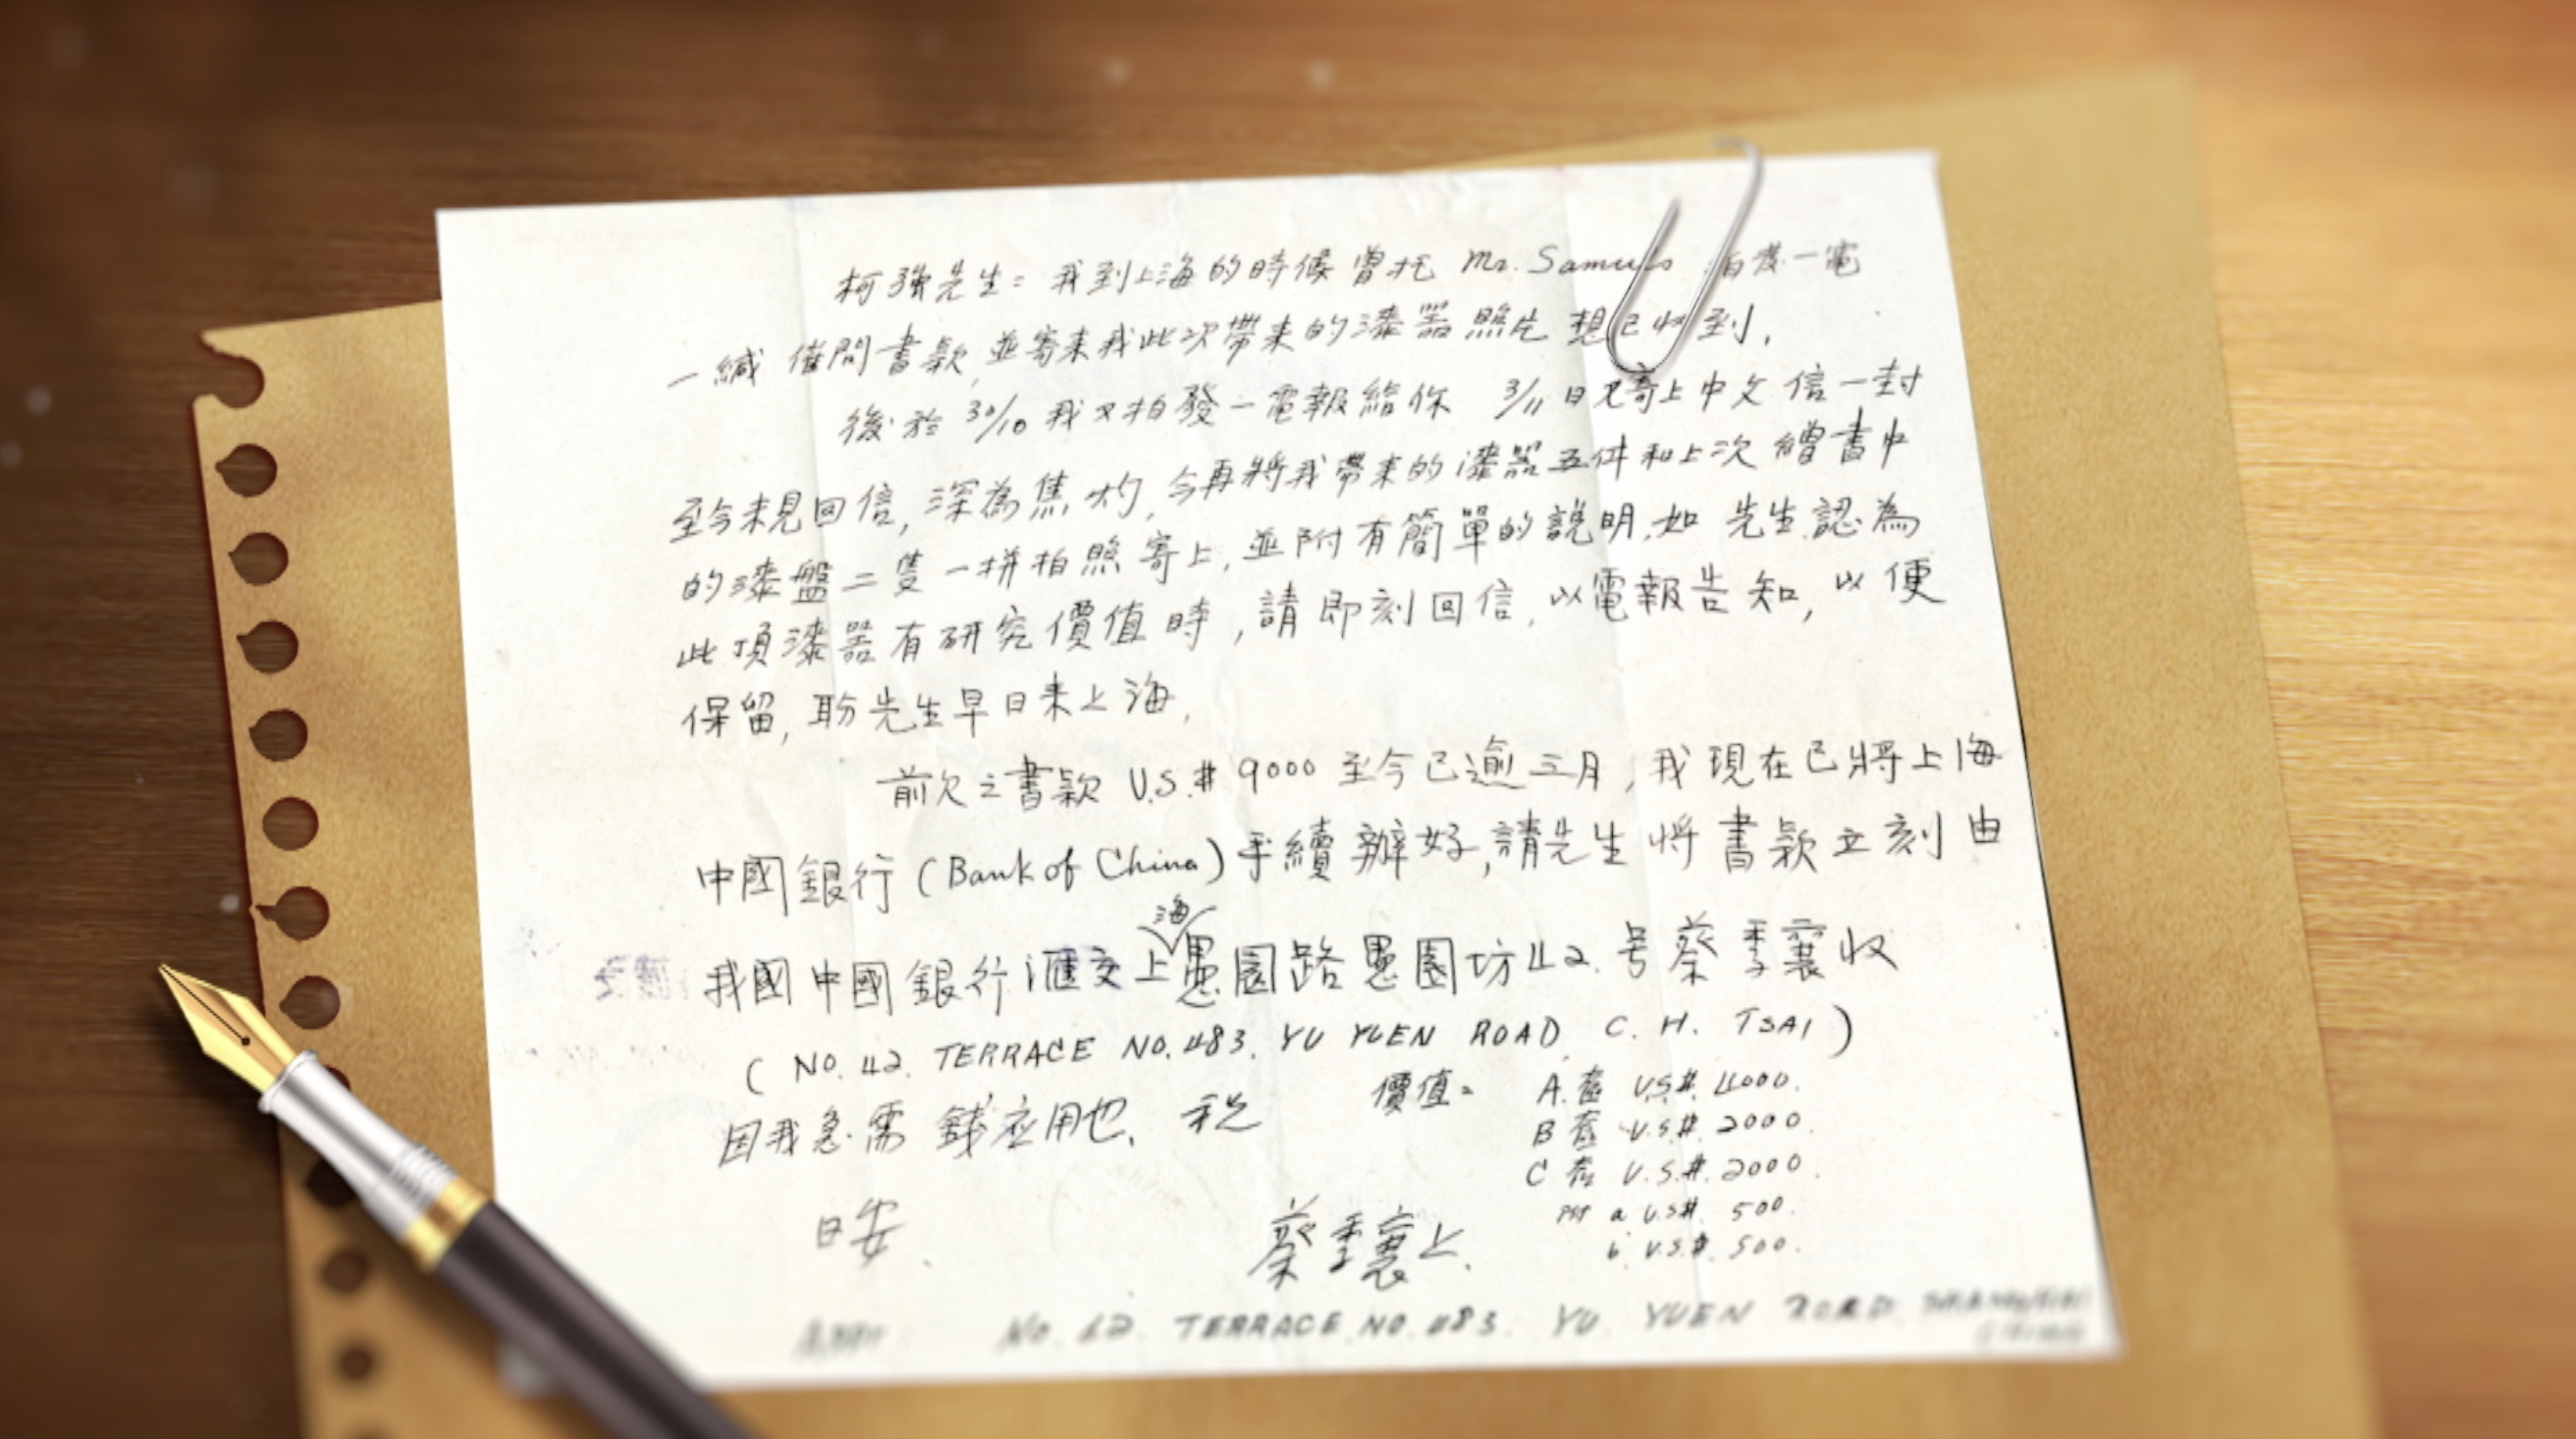 柯强先生：我到上海的時候曾托 Mr. Samuels 拍發一電
一緘 催問書款，並寄來我此次帶來的漆器照片 想已收到，
後於 30/10 我又拍發一電報給你 3/11 日又寄上中文信一封
至今未見回信，深為焦灼，今再將我帶來的漆器五件和上次繒書中
的漆盤二隻一拼拍照寄上，並附有簡單的說明，如 先生認為
此項漆器有研究價值時，請即刻回信，以電報告知，以便
保留，盼先生早日来上海，
前欠之書款 U.S.# 9000 至今已逾三月，我現在已將上海
中國銀行 (Bank of China) 手續辦好，請先生将書款立刻由
我國中國銀行匯交上海愚園路愚園坊42.号蔡季襄收
( NO. 42. TERRACE NO. 483. YU YUEN ROAD C. H. TSAI )
因我急需錢应用也. 祝
日安.
蔡季襄上.
價值：
A. 套 U.S.#. 4000.
B 套 U.S.#. 2000.
C 套 U.S.#. 2000.
a U.S.#. 500.
b. U.S.#. 500.
No. 42. TERRACE NO. 483. YU. YUEN ROAD. SHANGHAI